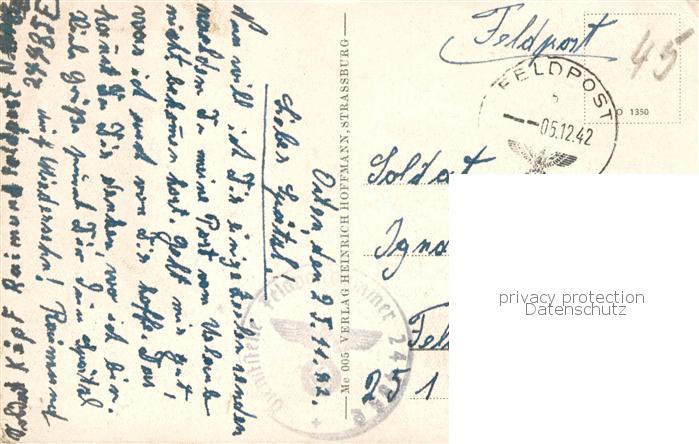 Feldpost
45
FELDPOST
b
05.12.42
O 1350
Soldat
Igna
Fel
25 1
privacy protection
Datenschutz
Me 005 VERLAG HEINRICH HOFFMANN, STRASSBURG
Dienststelle Feldpostnummer 24985 E
Osten, den 25.11.42.
Lieber
Nun will ich Dir einige Zeilen senden
Du meine Post vom
nicht bekommen hast. Geht mir gut,
was ich auch von Dir hoffe. Das
kannst Du Dir denken, wo ich bin.
Viele Grüße sendet Dir Dein
auf Wiedersehn! Raimund
Soldat Raimund Feldpost
24985 E